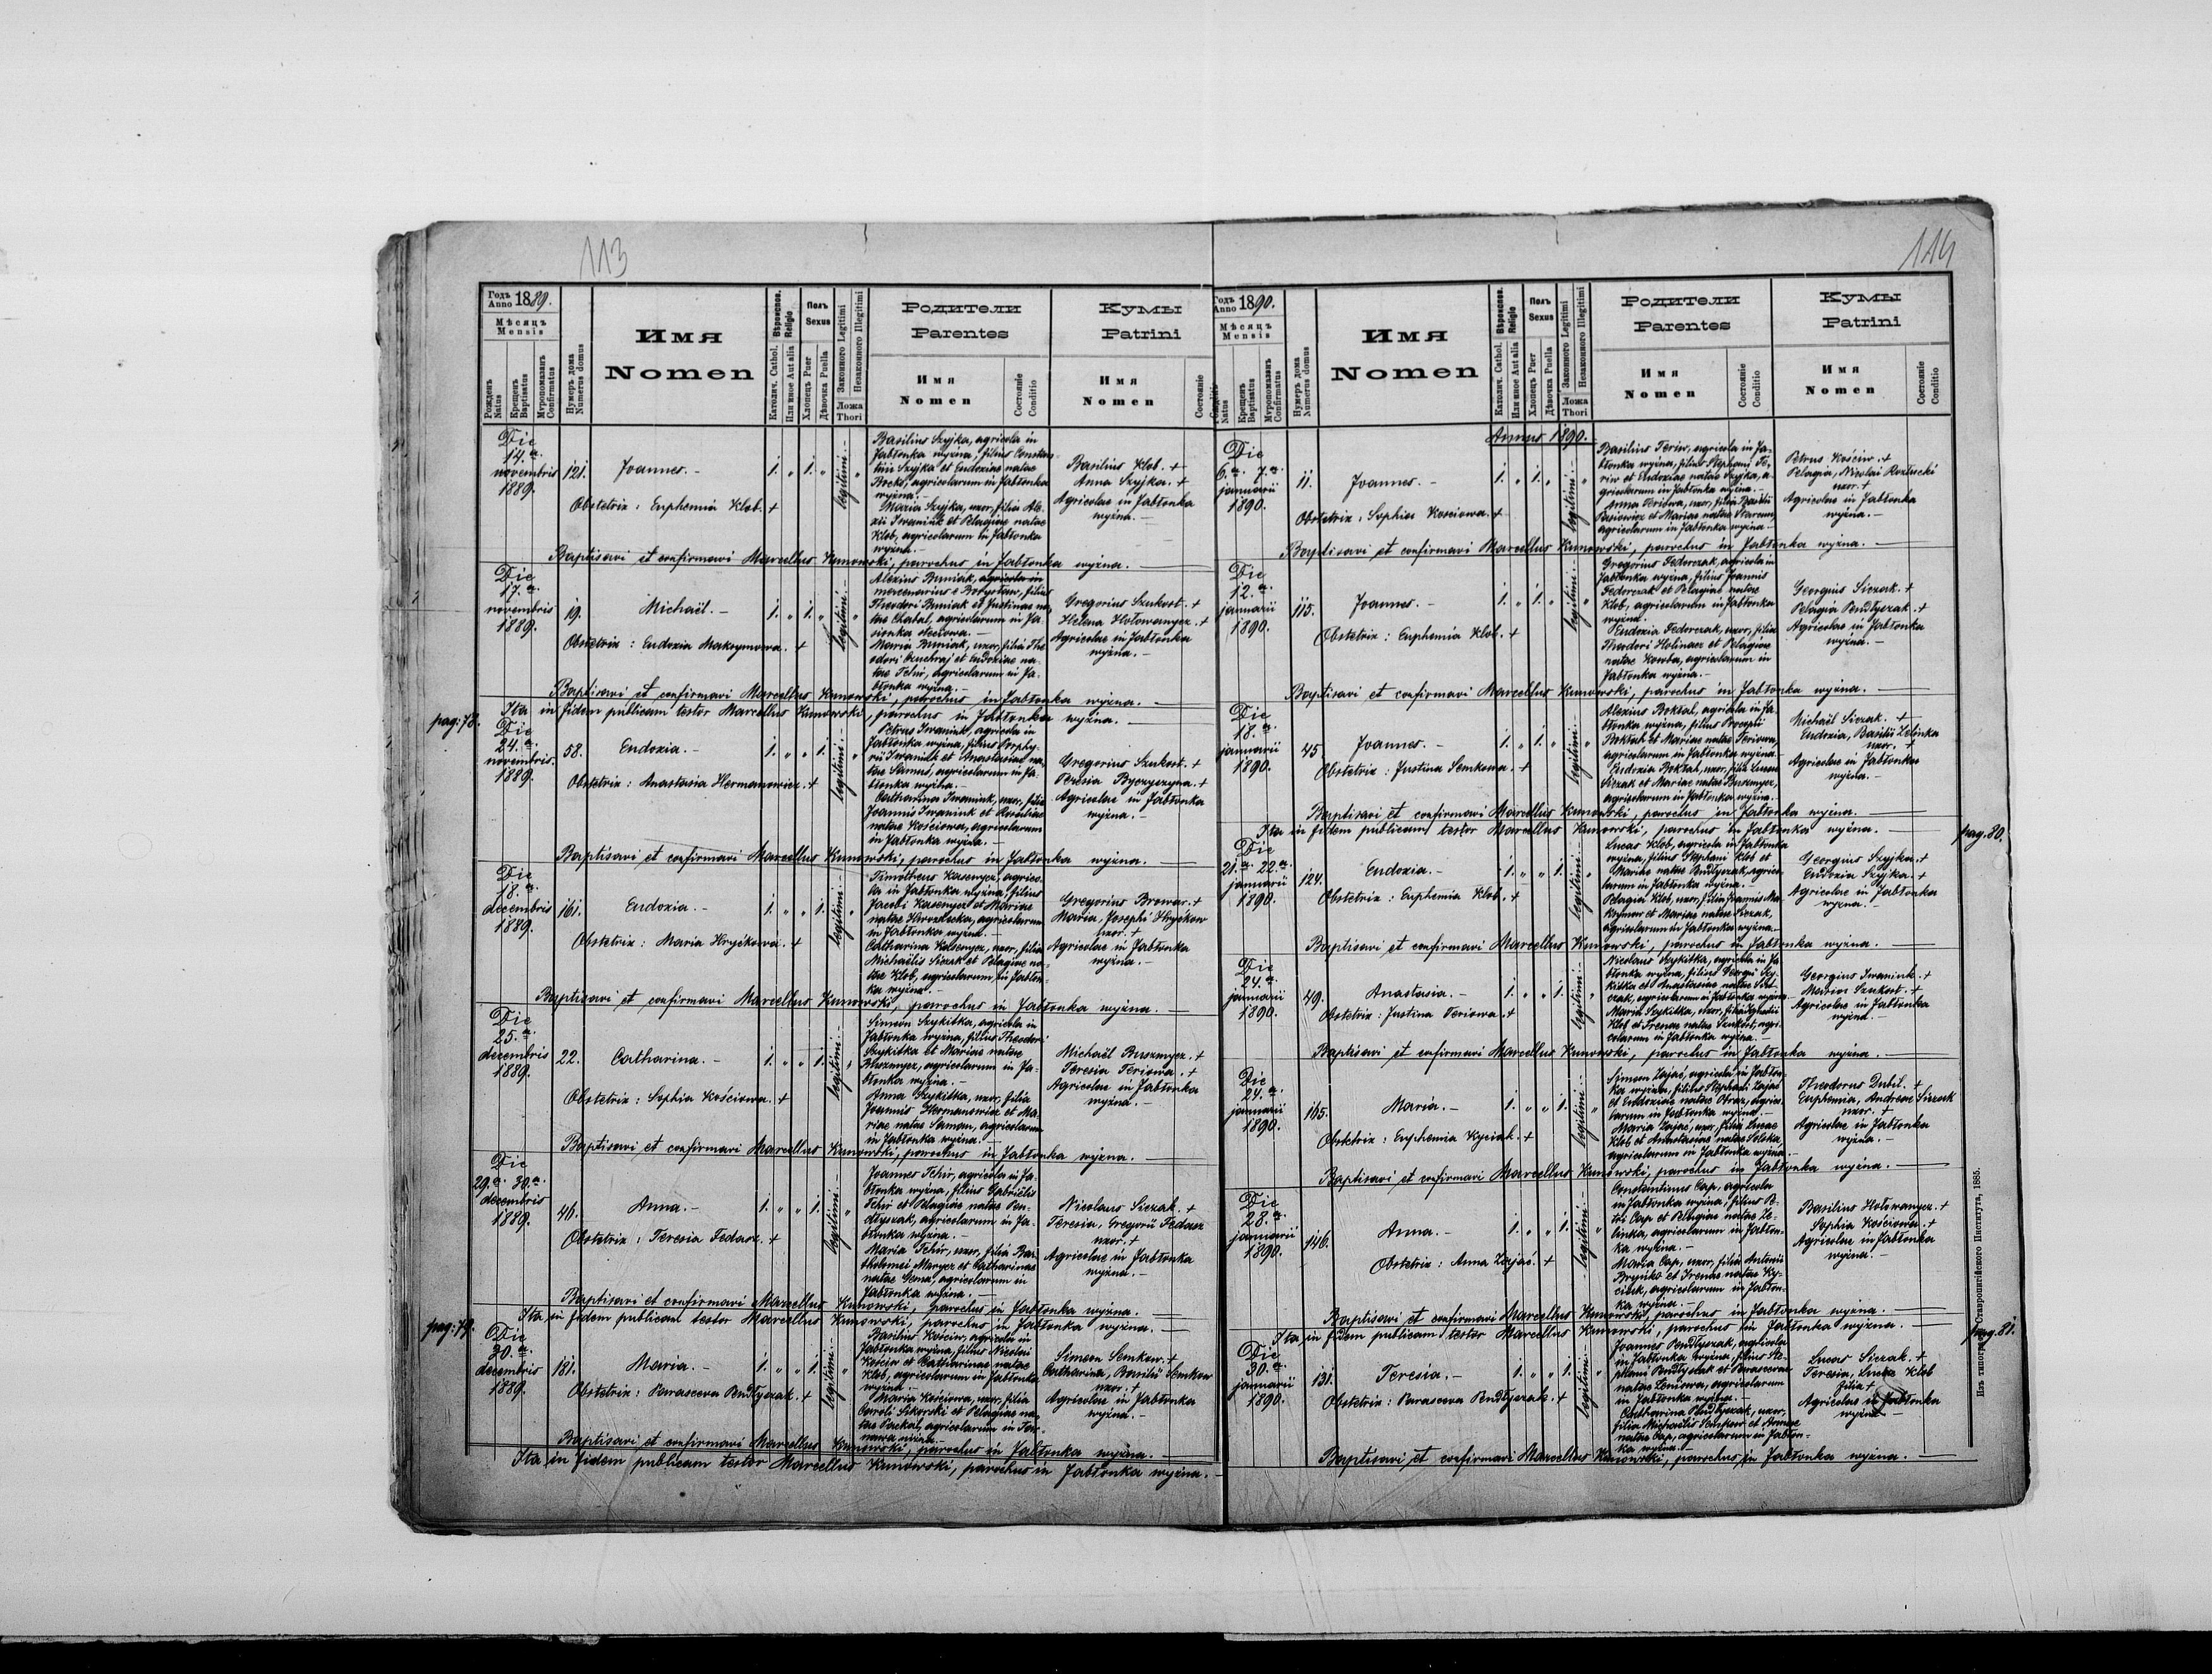 113
Годъ Anno 1889.
Мѣсяцъ Mensis
Рожденъ Natus
Крещенъ Baptisatus
Мѵропомазанъ Confirmatus
Нумеръ дома Numerus domus
Имя
Nomen
Вѣроиспов. Religio
Католич. Cathol.
Или иное Aut alia
Полъ Sexus
Хлопецъ Puer
Дѣвочка Puella
Законного Legitimi
Незаконного Illegitimi
Ложа Thori
Родители
Parentes
Имя Nomen
Состояніе Conditio
Кумы
Patrini
Имя Nomen
Состояніе
Die
14.a
novembris
1889.
121.
Joannes.-
1. " 1. "
legitimi.-
Basilius Szyjka, agricola in
Jabłonka wyżna, filius Constan-
tini Szyjka et Eudoxiae natae
Bocks, agricolarum in Jabłonka
wyżna.-
Maria Szyjka, uxor, filia Ale-
xii Iwaniuk et Pelagiae natae
Klob, agricolarum in Jabłonka
wyżna.-
Basilius Klob. +
Anna Szyjka. +
Agricolae in Jabłonka
wyżna.-
Obstetrix: Euphemia Klob. +
Baptisavi et confirmavi Marcellus Kunowski, parochus in Jabłonka wyżna.
Die
17.a
novembris
1889.
19.
Michaël.-
1. " 1. "
legitimi.-
Alexius Buniak, agricola in
mercenarius e Borysław, filius
Theodori Buniak et Justinae na-
tae Chabal, agricolarum in Ja-
sionka steciowa.-
Maria Buniak, uxor, filia The-
odori Czuchraj et Eudoxiae na-
tae Fehir, agricolarum in Ja-
błonka wyżna.-
Gregorius Szukost. +
Helena Hołowanycz. +
Agricolae in Jabłonka
wyżna.-
Obstetrix: Eudoxia Maksymowa. +
Baptisavi et confirmavi Marcellus Kunowski, parochus in Jabłonka wyżna.
Ita in fidem publicam testor Marcellus Kunowski, parochus in Jabłonka wyżna.
pag: 78.
Die
24.a
novembris.
1889.
58.
Eudoxia.-
1. " " 1.
legitimi.-
Petrus Iwaniuk, agricola in
Jabłonka wyżna, filius Porphy-
rii Iwaniuk et Anastasiae na-
tae Samus, agricolarum in Ja-
błonka wyżna.-
Catharina Iwaniuk, uxor, filia
Joannis Iwaniuk et Rosaliae
natae Kościowa, agricolarum
in Jabłonka wyżna.-
Gregorius Szukost. +
Agricolae in Jabłonka
wyżna.-
Obstetrix: Anastasia Hermanowicz. +
Baptisavi et confirmavi Marcellus Kunowski, parochus in Jabłonka wyżna.
Die
18.a
decembris
1889.
161.
Eudoxia.-
1. " " 1.
legitimi.-
Timotheus Kasenycz, agrico-
la in Jabłonka wyżna, filius
Jacobi Kasenycz et Mariae
natae Hwozdecka, agricolarum
in Jabłonka wyżna.-
Catharina Kasenycz, uxor, filia
Michaëlis Siczak et Pelagiae na-
tae Klob, agricolarum in Jabłon-
ka wyżna.-
Gregorius Browar. +
Maria, Josephi Hryckow
uxor. +
Agricolae in Jabłonka
wyżna.-
Obstetrix: Maria Hryckowa. +
Baptisavi et confirmavi Marcellus Kunowski, parochus in Jabłonka wyżna.
Die
25.a
decembris
1889.
22.
Catharina.-
1. " " 1.
legitimi.-
Simeon Szykitka, agricola in
Jabłonka wyżna, filius Theodori
Szykitka et Mariae natae
Buszmycz, agricolarum in Ja-
błonka wyżna.-
Anna Szykitka, uxor, filia
Joannis Hermanowicz et Ma-
riae natae Saman, agricolarum
in Jabłonka wyżna.-
Michaël Buszmycz. +
Teresia Feriowa. +
Agricolae in Jabłonka
wyżna.-
Obstetrix: Sophia Kościowa. +
Baptisavi et confirmavi Marcellus Kunowski, parochus in Jabłonka wyżna.
Die
29.a 30.a
decembris
1889.
46.
Anna.-
1. " " 1.
legitimi.-
Joannes Fehir, agricola in Ja-
błonka wyżna, filius Gabriëlis
Fehir et Pelagiae natae Pen-
dłyszak, agricolarum in Ja-
błonka wyżna.-
Maria Fehir, uxor, filia Bar-
tholomei Marycz et Catharinae
natae Gena, agricolarum in
Jabłonka wyżna.-
Nicolaus Siczak. +
Teresia, Gregorii Fedasz
uxor. +
Agricolae in Jabłonka
wyżna.-
Obstetrix: Teresia Fedasz. +
Baptisavi et confirmavi Marcellus Kunowski, parochus in Jabłonka wyżna.
Ita in fidem publicam testor Marcellus Kunowski, parochus in Jabłonka wyżna.
pag: 79.
Die
30.a
decembris
1889.
181.
Maria.-
1. " " 1.
legitimi.-
Basilius Kościw, agricola in
Jabłonka wyżna, filius Nicolai
Kościw et Catharinae natae
Klob, agricolarum in Jabłonka
wyżna.-
Maria Kościowa, uxor, filia
Caroli Sikorski et Pelagiae na-
tae Packal, agricolarum in Tar-
nawa niżna.-
Simeon Semkow. +
Catharina, Basilii Semkow
uxor. +
Agricolae in Jabłonka
wyżna.-
Obstetrix: Parasceva Pendłyszak. +
Baptisavi et confirmavi Marcellus Kunowski, parochus in Jabłonka wyżna.
Ita in fidem publicam testor Marcellus Kunowski, parochus in Jabłonka wyżna.
114
Годъ Anno 1890.
Мѣсяцъ Mensis
Natus
Крещенъ Baptisatus
Мѵропомазанъ Confirmatus
Нумеръ дома Numerus domus
Имя
Nomen
Вѣроиспов. Religio
Католич. Cathol.
Или иное Aut alia
Полъ Sexus
Хлопецъ Puer
Дѣвочка Puella
Законного Legitimi
Незаконного Illegitimi
Ложа Thori
Родители
Parentes
Имя Nomen
Состояніе Conditio
Кумы
Patrini
Имя Nomen
Состояніе Conditio
Annus 1890.
Die
6.a 7.a
januarii
1890.
11.
Joannes.-
1. " 1. "
legitimi.-
Basilius Feriw, agricola in Ja-
błonka wyżna, filius Stephani Fe-
riw et Eudoxiae natae Szyjka, a-
gricolarum in Jabłonka wyżna.-
Anna Feriowa, uxor, filia Basilii
agricolarum in Jabłonka wyżna.-
Petrus Kościw. +
Pelagia, Nicolai Rozłucki
uxor. +
Agricolae in Jabłonka
wyżna.-
Obstetrix: Sophia Kosciowa. +
Baptisavi et confirmavi Marcellus Kunowski, parochus in Jabłonka wyżna.
Die
12.a
januarii
1890.
115.
Joannes.-
1. " 1. "
legitimi.-
Gregorius Fedorczak, agricola in
Jabłonka wyżna, filius Joannis
Fedorczak et Pelagiae natae
Klob, agricolarum in Jabłonka
wyżna.
Eudoxia Fedorczak, uxor, filia
Theodori Holinacz et Pelagiae
natae Kowba, agricolarum in
Jabłonka wyżna.-
Georgius Siczak. +
Pelagia Pendłyszak. +
Agricolae in Jabłonka
wyżna.-
Obstetrix: Euphemia Klob. +
Baptisavi et confirmavi Marcellus Kunowski, parochus in Jabłonka wyżna.
Die
18.a
januarii
1890.
45
Joannes.-
1. " 1. "
legitimi.-
Alexius Boktal, agricola in Ja-
błonka wyżna, filius Procopii
Boktal et Mariae natae Feriowa,
agricolarum in Jabłonka wyżna.-
Eudoxia Boktal, uxor, filia Lucae
Siczak et Mariae natae Buszmycz,
agricolarum in Jabłonka wyżna.-
Michaël Siczak. +
Eudoxia, Basilii Zelinka
uxor. +
Agricolae in Jabłonka
wyżna.-
Obstetrix: Justina Semkowa. +
Baptisavi et confirmavi Marcellus Kunowski, parochus in Jabłonka wyżna.
Ita in fidem publicam testor Marcellus Kunowski, parochus in Jabłonka wyżna.
pag. 80.
Die
21.a 22.a
januarii
1890.
124.
Eudoxia.-
1. " " 1.
legitimi.-
Lucas Klob, agricola in Jabłonka
wyżna, filius Stephani Klob et
Mariae natae Pendłyszak, agrico-
larum in Jabłonka wyżna.-
Pelagia Klob, uxor, filia Joannis Ma-
ksymow et Mariae natae Siczak,
agricolarum in Jabłonka wyżna.-
Georgius Szyjka. +
Eudoxia Szyjka. +
Agricolae in Jabłonka
wyżna.-
Obstetrix: Euphemia Klob. +
Baptisavi et confirmavi Marcellus Kunowski, parochus in Jabłonka wyżna.
Die
24.a
januarii
1890.
49.
Anastasia.-
1. " " 1.
legitimi.-
Nicolaus Szykitka, agricola in Ja-
błonka wyżna, filius Georgii Szy-
kitka et Anastasiae natae
czak, agricolarum in Jabłonka wyżna.-
Maria Szykitka, uxor, filia
Klob et Irenae natae Szukost, agri-
colarum in Jabłonka wyżna.-
Georgius Iwaniuk. +
Maria Szukost. +
Agricolae in Jabłonka
wyżna.-
Obstetrix: Justina Feriowa. +
Baptisavi et confirmavi Marcellus Kunowski, parochus in Jabłonka wyżna.
Die
24.a
januarii
1890.
165.
Maria.-
1. " " 1.
legitimi.-
Simeon Zająć, agricola in Jabłon-
ka wyżna, filius Stephani Zająć
et Eudoxiae natae Obraz, agrico-
larum in Jabłonka wyżna.-
Maria Zająć, uxor, filia Lucae
Klob et Anastasiae natae
agricolarum in Jabłonka wyżna.-
Theodorus Dubil. +
Euphemia, Andreae Siczak
uxor. +
Agricolae in Jabłonka
wyżna.-
Obstetrix: Euphemia Kyciak. +
Baptisavi et confirmavi Marcellus Kunowski, parochus in Jabłonka wyżna.
Die
28.a
januarii
1890.
146.
Anna.-
1. " " 1.
legitimi.-
Constantinus Cap, agricola
in Jabłonka wyżna, filius Pe-
tri Cap et Pelagiae natae Ze-
linka, agricolarum in Jabłon-
ka wyżna.-
Maria Cap, uxor, filia Antonii
Bryńka et Irenae natae Ky-
ciak, agricolarum in Jabłon-
ka wyżna.-
Basilius Hołowanycz. +
Sophia Kościowa. +
Agricolae in Jabłonka
wyżna.-
Obstetrix: Anna Zająć. +
Baptisavi et confirmavi Marcellus Kunowski, parochus in Jabłonka wyżna.
Ita in fidem publicam testor Marcellus Kunowski, parochus in Jabłonka wyżna.
pag. 81.
Die
30.a
januarii
1890.
131.
Teresia.-
1. " " 1.
legitimi.-
Joannes Pendłyszak, agricola
in Jabłonka wyżna, filius Ste-
phani Pendłyszak et Parascevae
natae Leniowa, agricolarum
in Jabłonka wyżna.-
Catharina Pendłyszak, uxor,
filia Michaëlis Semkow et Annae
natae Cap, agricolarum in Jabłon-
ka wyżna.-
Lucas Siczak. +
Teresia, Lucae Klob
filia +
Agricolae in Jabłonka
wyżna.-
Obstetrix: Parasceva Pendłyszak. +
Baptisavi et confirmavi Marcellus Kunowski, parochus in Jabłonka wyżna.
Изъ типографіи Ставропигійского Института, 1885.